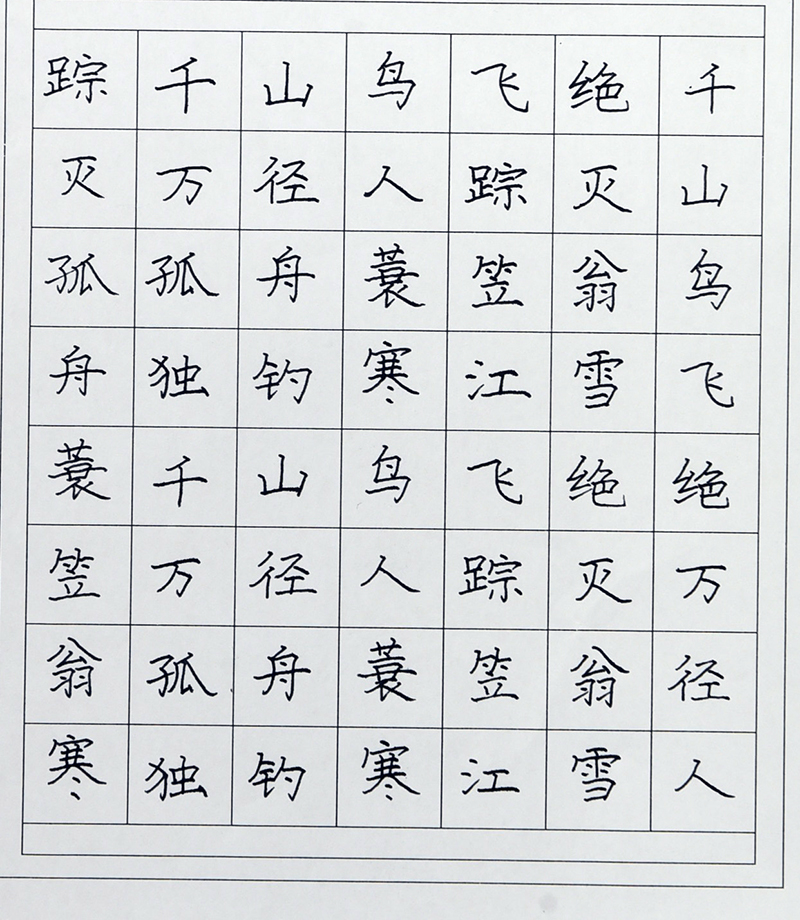 踪千山鸟飞绝千
灭万径人踪灭山
孤孤舟蓑笠翁鸟
舟独钓寒江雪飞
蓑千山鸟飞绝绝
笠万径人踪灭万
翁孤舟蓑笠翁径
寒独钓寒江雪人